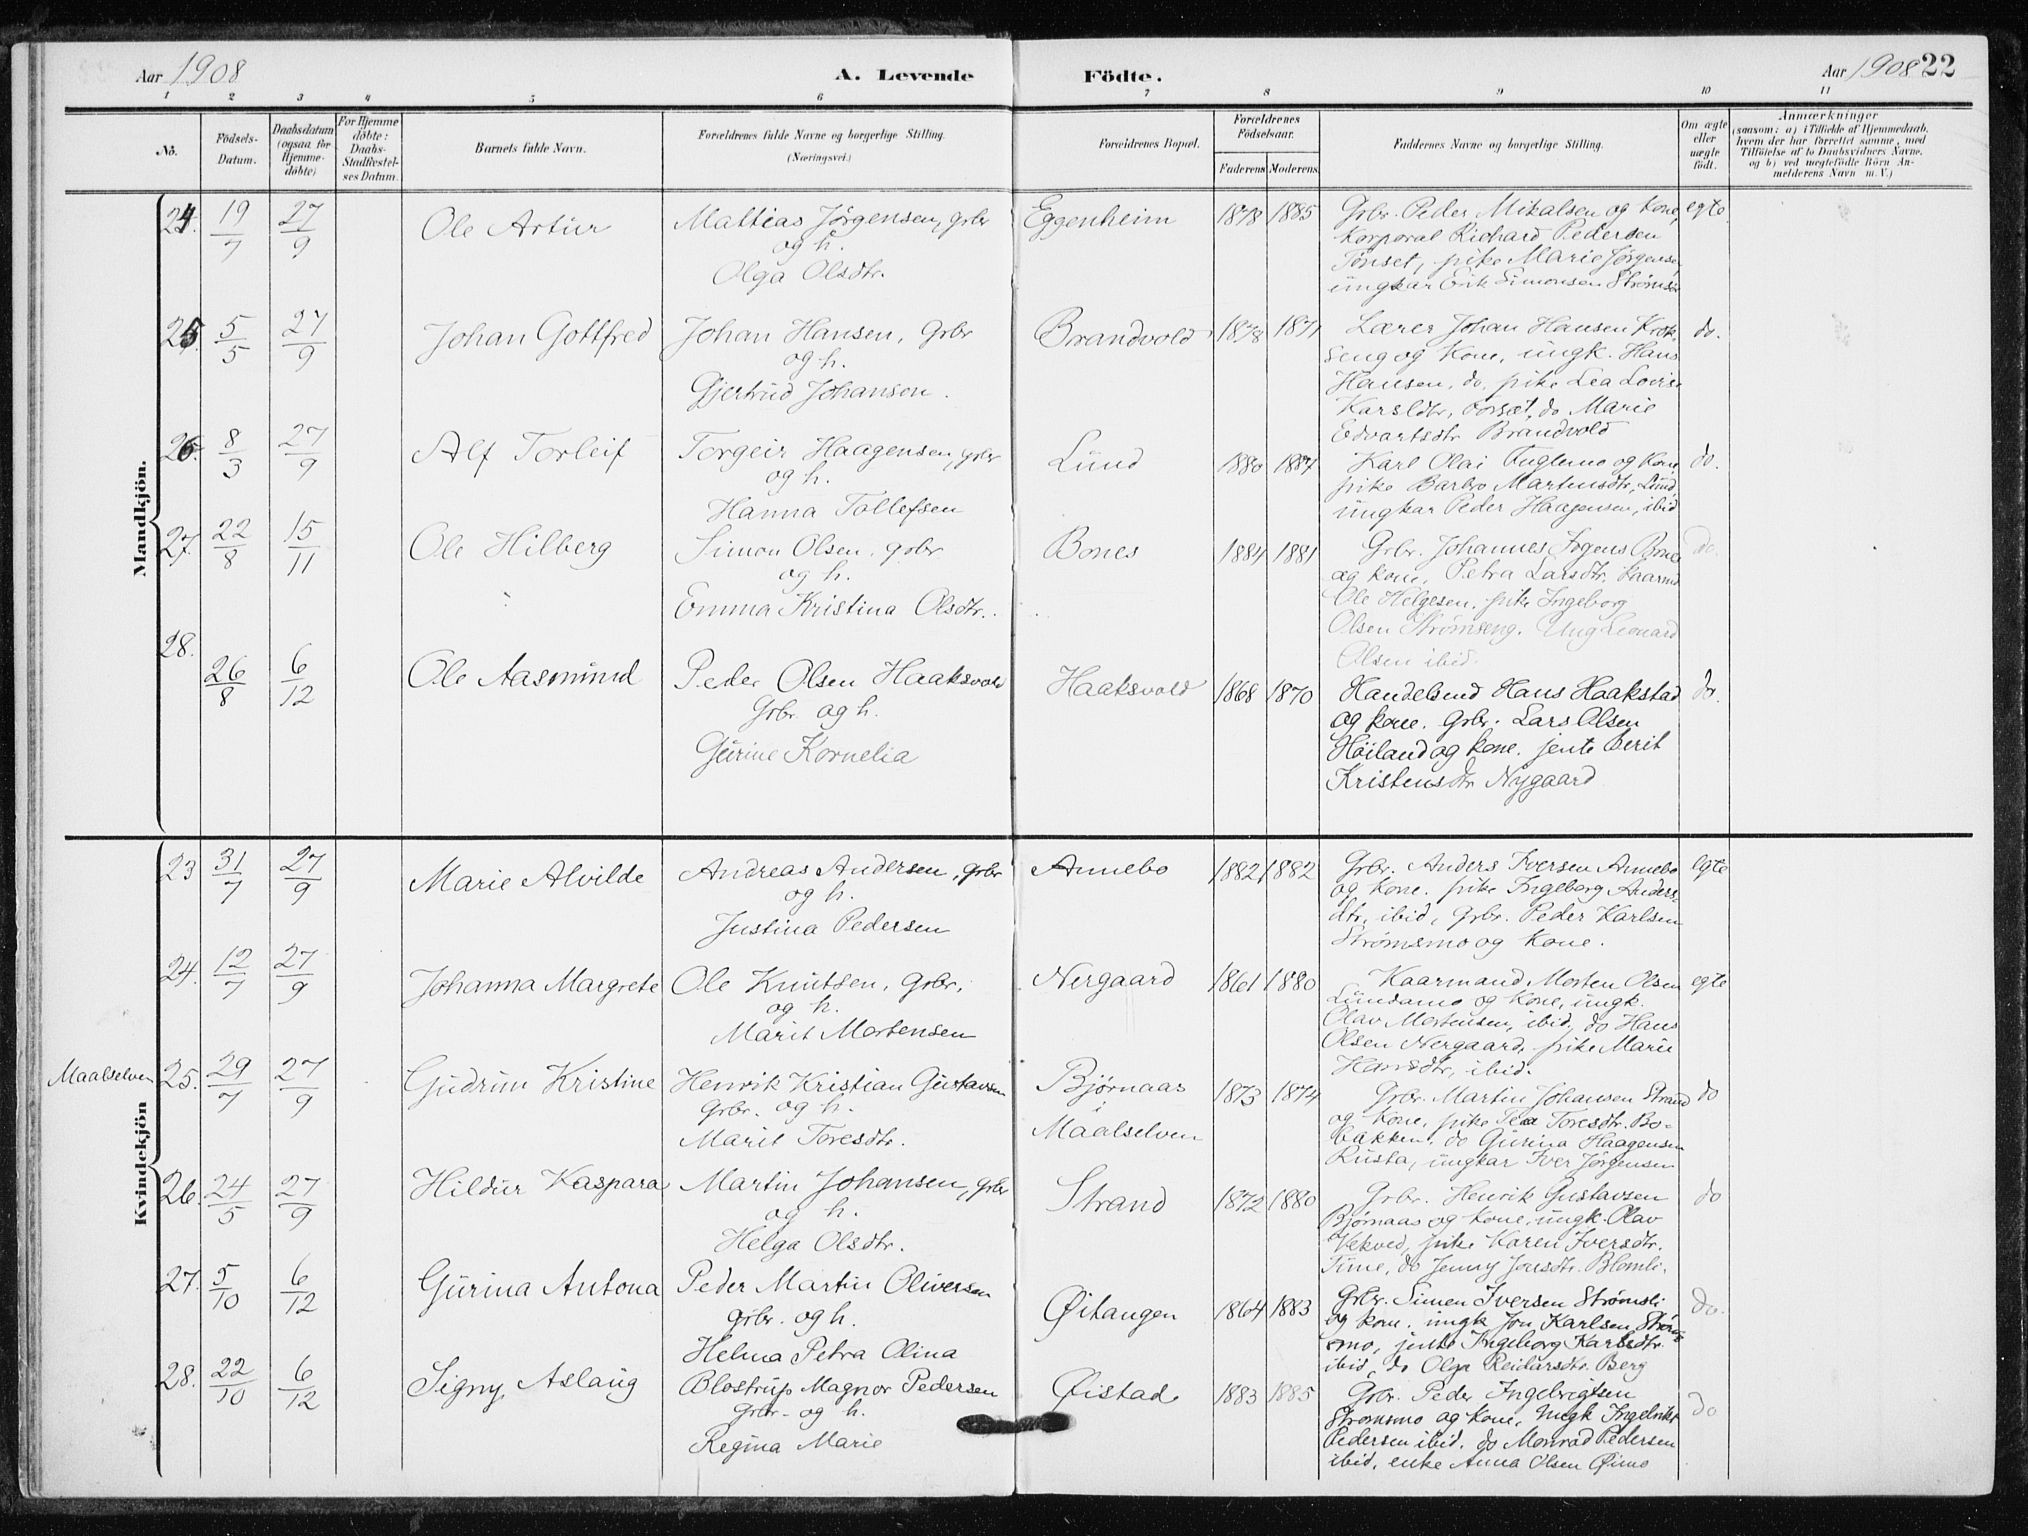 Aar 1908 A. Levende Födte. Aar 1908 22
1 2 3 4 5 6 7 8 9 10 11
No. Födsels-Datum. Daabsdatum (ogsaa for Hjemme-döbte) For Hjemme döbte: Daabs-Stadfæstel-ses Datum. Barnets fulde Navn. Forældrenes fulde Navne og borgerlige Stilling. (Næringsvei.) Forældrenes Bopæl. Forældrenes Födselsaar. Faderens Moderens Faddernes Navne og borgerlige Stilling. Om ægte eller uægte födt. Anmærkninger (saasom: a) i Tilfælde af Hjemmedaab, hvem der har forrettet samme, med Tilföielse af to Daabsvidners Navne, og b) ved uægtefödte Börn An-melderens Navn m. V.)
Mandkjön.
24. 19/7 27/9 Ole Artur Mattias Jørgensen, grbr Eggenheim 1878 1885 Grbr. Peder Mikalsen og Kone, egte
og h. Korporal Richard Pedersen
Olga Olsdtr. Tønset, pike Marie Jørgensen,
ungkar Erik Simonsen
25. 5/5 27/9 Johan Gottfred Johan Hansen, Grbr Brandvold 1878 1871 Lærer Johan Hansen Krok- do.
og h. seng og Kone, ungk. Hans
Gjertrud Johanson. Hansen, do, pike Lea Lovise
Karsldtr, do Marie
Edvartsdtr Brandvold
26. 8/3 27/9 Alf Torleif Torgeir Haagensen, grbr Lund 1880 1887 Karl Olai Fuglemo og Kone, do.
og h. pike Barbro Martensdtr, Lund,
Hanna Tollefsen ungkar Peder Haagensen, ibid
27. 22/8 15/11 Ole Hilberg Simon Olsen, grbr Bones 1884 1881 Grbr. Johannes Bones do.
og h. og kone, Petra Larsdtr. Kaarmd
Emma Kristina Olsdtr. Ole Helgesen, pike Ingeborg
Olsen Strømseng. Ung Leonard
Olsen ibid.
28. 26/8 6/12 Ole Aasmund Peder Olsen Haaksvold Haaksvold 1868 1870 Handelsmd Hans Haakstad do.
Grbr. og h. og kone. Grbr. Lars Olsen
Gurine Kornelia Høiland og kone. jente Berit
Kristensdtr Nygaard
Kvindekjön
23 31/7 27/9 Marie Alvilde Andreas Andersen, grbr Annebo 1882 1882 Grbr. Anders Iversen Annebo egte
og h. og Kone. pike Ingeborg Anders-
Justina Pedersen dtr, ibid, Grbr. Peder Karlsen
Strømsmo og Kone.
24. 12/7 27/9 Johanna Margrete Ole Knutsen, Grbr, Nergaard 1861 1880 Kaarmand Morten Olsen egte
og h. Lundamo og Kone, ungk.
Marit Mortensen Olav Mortensen, ibid, do Hans
Olsen Nergaard, pike Marie
Hansdtr, ibid.
Maalselven 25. 29/7 27/9 Gudrun Kristine Henrik Kristian Gustavsen Bjørnaas 1873 1874 Grbr. Martin Johansen Strand do
grbr. og h. i og Kone, pike Tea Toresdtr. Bo-
Marit Toresdtr. Maalselven bakken, do Gurina Haagensen
Rusta, ungkar Iver Jørgensen
26. 24/5 27/9 Hildur Kaspara Martin Johansen, grbr Strand 1872 1880 Grbr. Henrik Gustavsen do
og h. Bjørnaas og Kone, ungk. Olav
Helga Olsdtr. Vekved, pike Karen Iversdtr.
Time, do Jenny Jonsdtr. Blomli.
27. 5/10 6/12 Gurina Antona Peder Martin Oliversen Øitangen 1864 1883 Grbr. Simen Iversen Strømsli do.
grbr. og h. og kone. ungk Jon Karlsen Strøms-
Helma Petra Olina mo, jente Ingeborg Karlsdtr.
ibid, do Olga Reidarsdtr. Berg
28. 22/10 6/12 Signy Aslaug Blostrup Magnor Pedersen Øistad 1883 1885 Grbr. Peder Ingebrigtsen do
Grbr. og h. Strømsmo og Kone, Ungk Ingebrikt
Regina Marie Pedersen ibid. do Monrad Pedersen
ibid, enke Anna Olsen Øimo